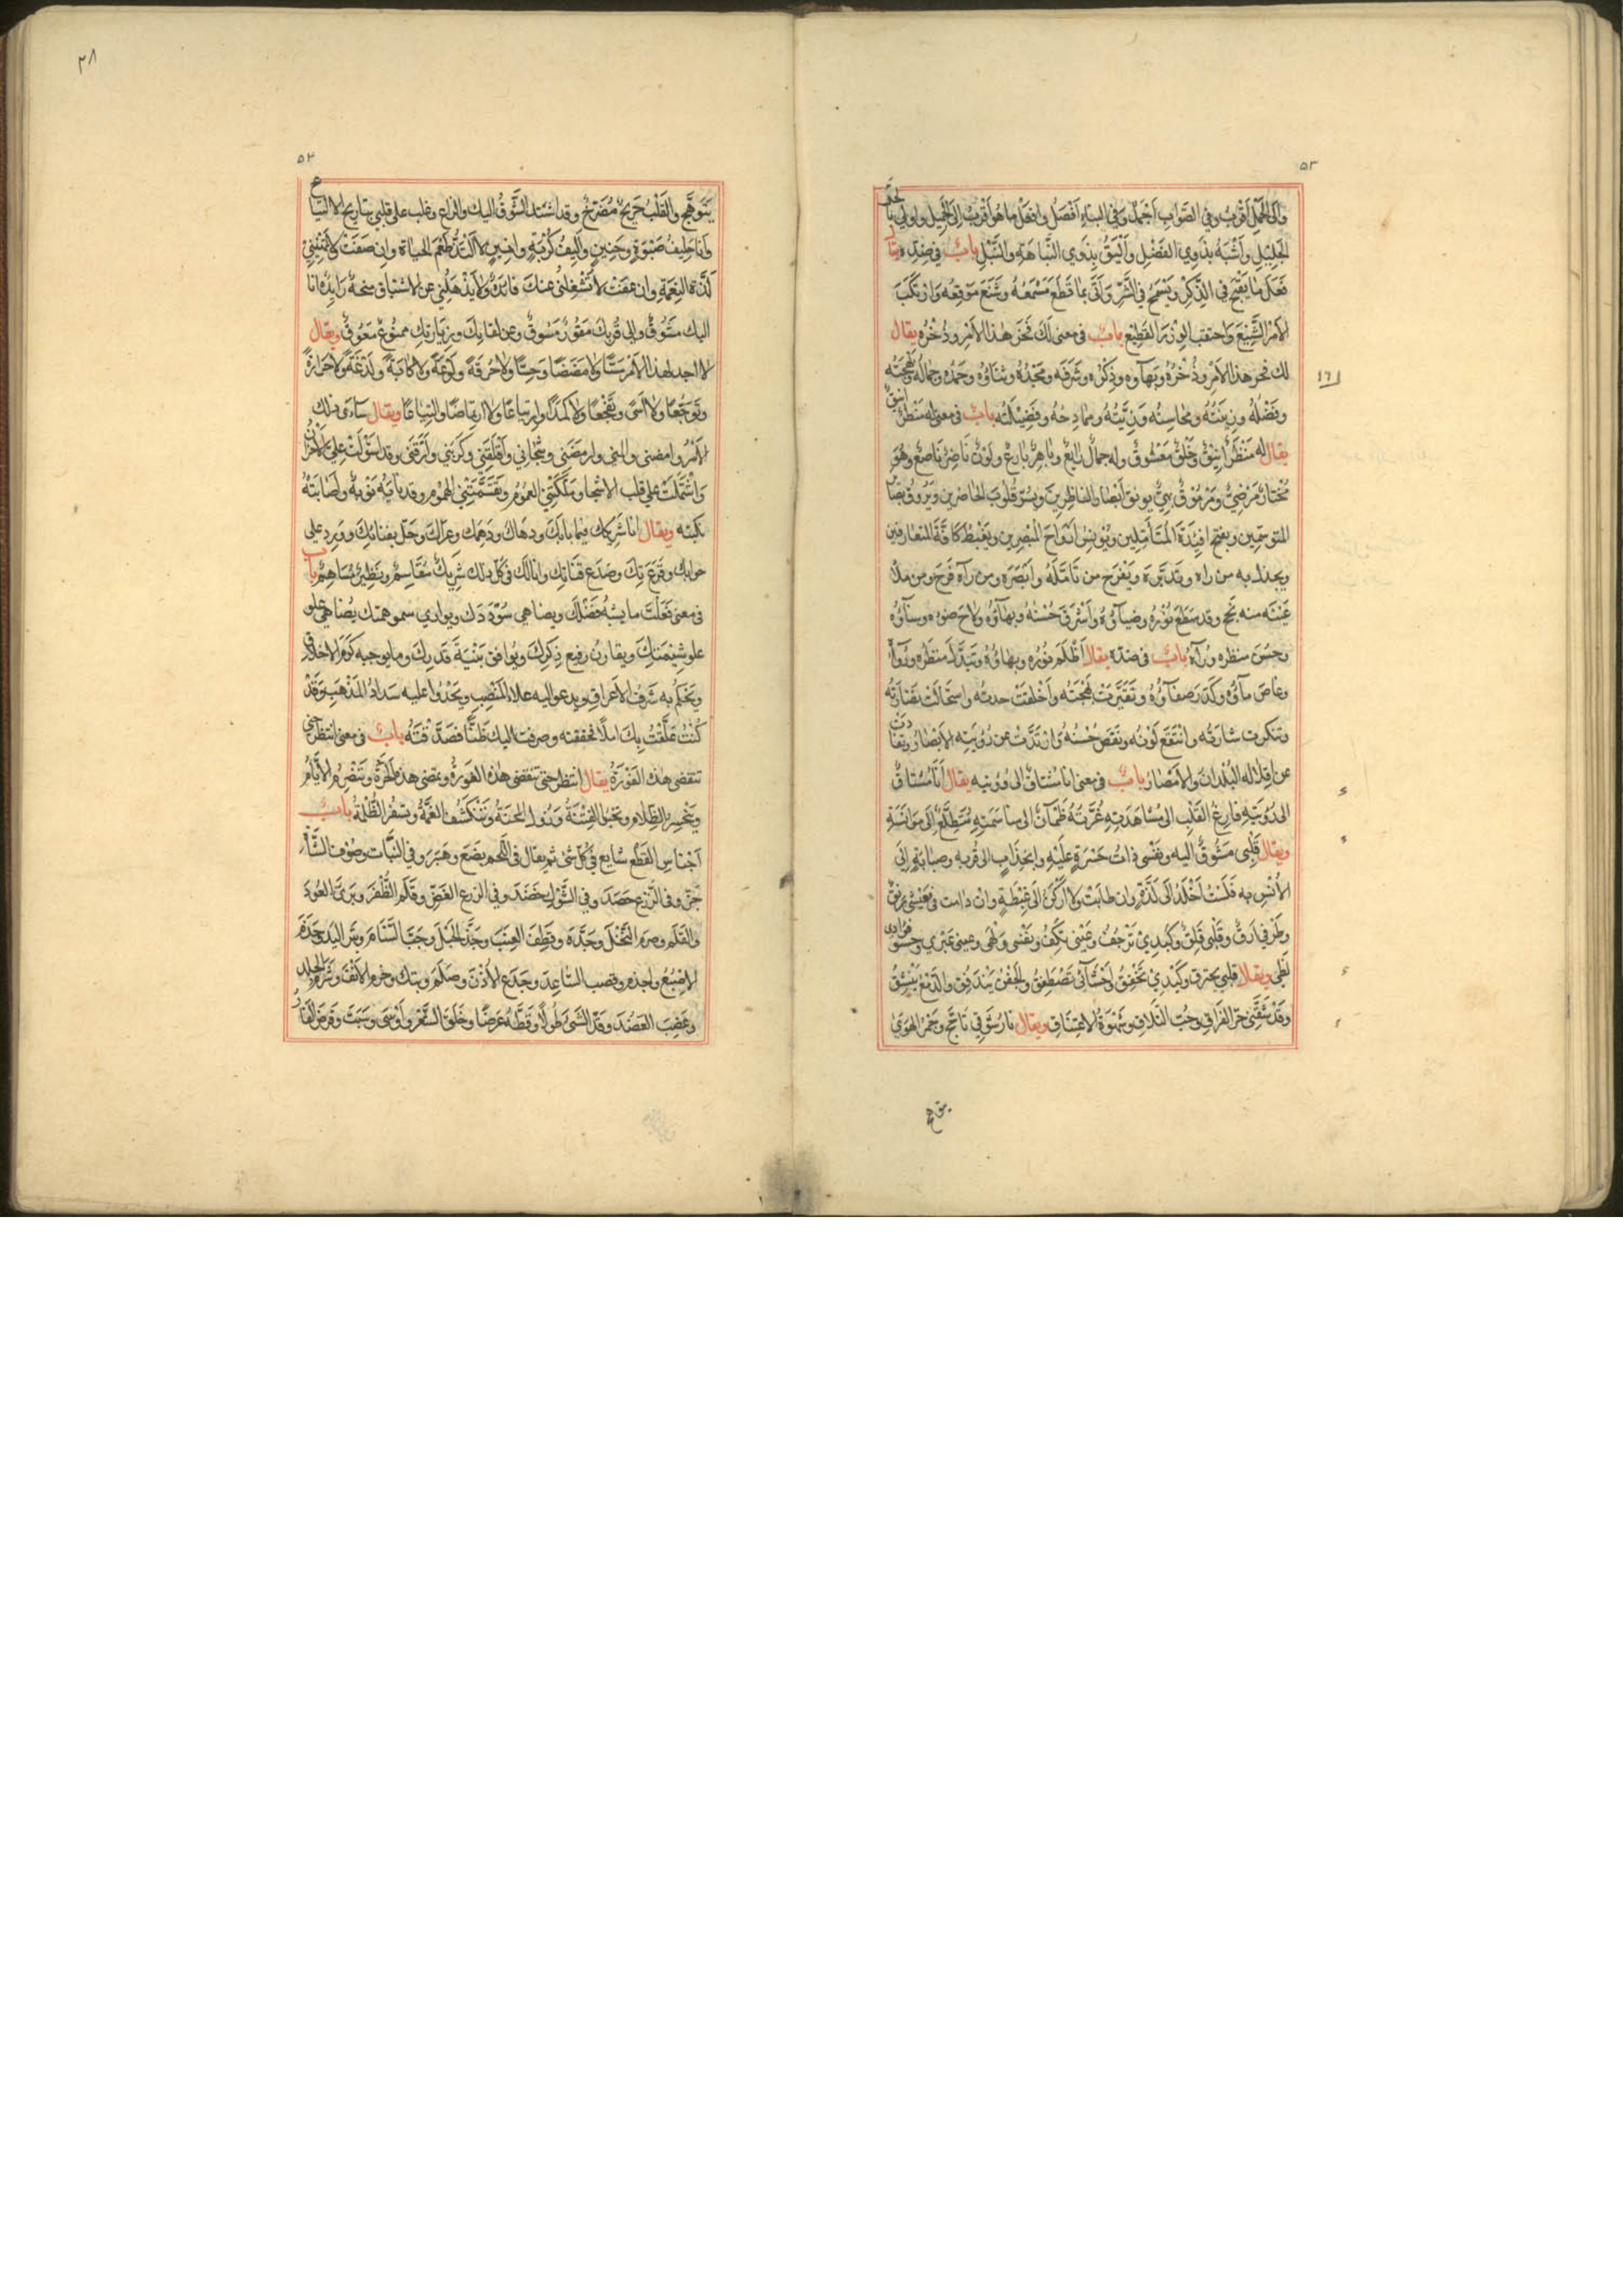 ٥٣
والى الجمل اقرب وفي الصواب اجمل وفي البناء افضل وافعل ما هو اقرب الى الجميل واولى
الجليل واشبه بذوي الفضل واليق بذوي النباهة والنبل باب في ضده يقال
فعل ما يقبح في الذكر ويسمج في النشر واتى بما قطع مسمعه وشنع موقعه وارتكب
الامر الشنيع واحتقب الوزر الفظيع باب في معنى لك فخر هذا الامر وذخره يقال
لك فخر هذا الامر وذخره وبهاوه وذكره وشرفه ومجده وثناؤه وحمده وجماله وبهجته
وفضله وزينته ومحاسنه وزينته وممادحه وفضيلته باب في معنى له منظر انيق
يقال له منظر انيق وخلق معشوق وله جمال رايع وباهر بارع ولون ناضر ناصع وهو
مختار مرضي ومرموق بهي يونق ابصار الناظرين ويسر قلوب الحاضرين ويروق بصاير
المتوسمين ويفتح افيدة المتأملين ويونس ارواح المبصرين ويغبط كافة المتعارفين
ويجذل به من راه وتدبره ويفرح من تامله وابصره ومن رآه فرح ومن ملأ
عينه منه نجح وقد سطع نوره وضياؤه واشرق حسنه وبهاؤه ولاح ضوءه وسناؤه
وحسن منظره ورآه باب في ضده يقال اظلم نوره وبهاؤه وتبدل منظره ورواه
وغاض ماؤه وكدر صفاؤه وتغيرت بهجته واخلقت جدته واستحالت نضارته
وتنكرت شارته وانتقع لونه ونقص حسنه وارتدت عن رؤيته الابصار وتقاد
عن اقلاله البلدان والامصار باب في معنى انا مشتاق الى رؤيته يقال انا مشتاق
الى رؤيته فارغ القلب الى مشاهدته غرته ظمآن الى مناسمته متطلع الى موانسته
ويقال قلبي مشوق اليه ونفسي ذات حسرة عليه وانجذاب الى قربه وصبابة الى
الانس به فلست اخلد الى لذة وان طابت ولا اركن الى غبطة وان دامت فعيشي رنق
وطرفي ارق وقلبي قلق وكبدي ترجف وعيني تكف ونفسي ولهى وعيني عبرى وحشو فوادى
لظى ويقال قلبي يحترق وكبدي تخفق واحشائي تصطفق والجفن يندفق والدمع ينبثق
وقد شفني حر الفراق وحب التلاق وشهوة الاعتناق ويقال نار شوقي تاجج وجمر الهوى
٥٣
يتوهج والقلب جريح مضرج وقد اشتد الشوق اليك والنزاع وغلب على قلبي تباريح الالتياع
وانا حليف صبوة وحنين واليف كربة وانين لا التذ طعم الحياة وان صفت ولا تهنيني
لذة النعمة وان عفت لا تشغلني عنك فائدة ولا يذهلني عن الاشتياق منحة زايدة انا
اليك مشوق والى قربك مسوق وعن لقايك وزيارتك ممنوع معوق ويقال
لا اجد لهذا الامر مسا ولا مضضا وحسا ولا حرقة ولوعة ولا كابة ولذعة ولا حرارة
وتوجعا ولا اسى وتفجعا ولا كمدا وارتياعا ولا ارتماضا والتياعا ويقال ساءني ذلك
الامر وامضني والمني وارمضني وشجاني واقلقني وكربني وارقني وقد استولت علي الاحزان
واشتملت على قلب الاشجان وتملكتني الغموم وتقسمتني الهموم وقد نابته نوبة واصابته
نكبته ويقال انا شريكك فيما نابك ودهاك ودهمك وعراك وحل بفنائك وورد على
حوابك وقرع وصدع قناتك وانا لك في كل ذلك شريك مقاسم ونظير مساهم باب
في معنى فعلت ما يشبه فضلك ويضاهي سوددك ويوازي سمو همتك يضاهي علو
علو شيمتك ويقارن رفيع ذكرك ويوافق بنية قدرك وما يوجبه كرم الاخلاق
ويحكم به شرف الاعراق ويدعو اليه علاء المنصب ويحدوا عليه سداد المذهب وقد
كنت علقت بك املا فحققته وصرفت اليك ظنا فصدقته باب في معنى انتظر حتى
تنقضى هذه الفورة يقال انتظر حتى تنقضى هذه الفورة وتمضى هذه الحرة وتنصرم الايام
وينحسر الظلام وتنجلى الفتنة وتزول المحنة وتنكشف الغمة وتسفر الظلمة باب
اجناس القطع شايع في كل شئ ثم يقال في اللحم بضع وهبر وفي النبات وصوف الشاة
جز وفي الزرع حصد وفي الشوك خضد وفي الزرع الغض وقلم الظفر وبرى العود
والقلم وصرم النخل وجده وقطف العنب وجذ الحبل وجب السنام وبتر اليد وجذم
الاصبع واجذم وقصب الساعد وجدع الاذن وصلم وبتك وخرم الانف وشرم الجلد
وعضد العضد وقد الشئ طولا وقطه عرضا وحلق الشعر واوسى وسبت وقرض الفار
٣٨